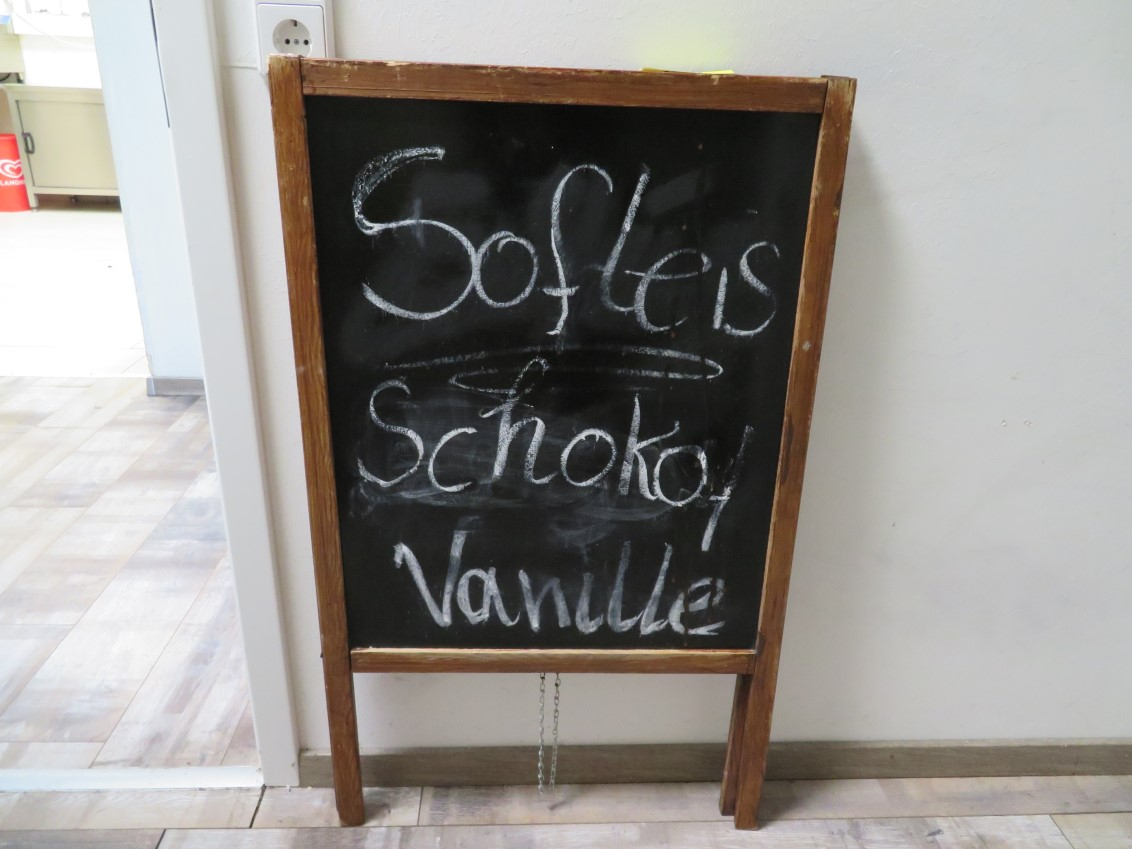 Softeis
Schoko/
Vanille